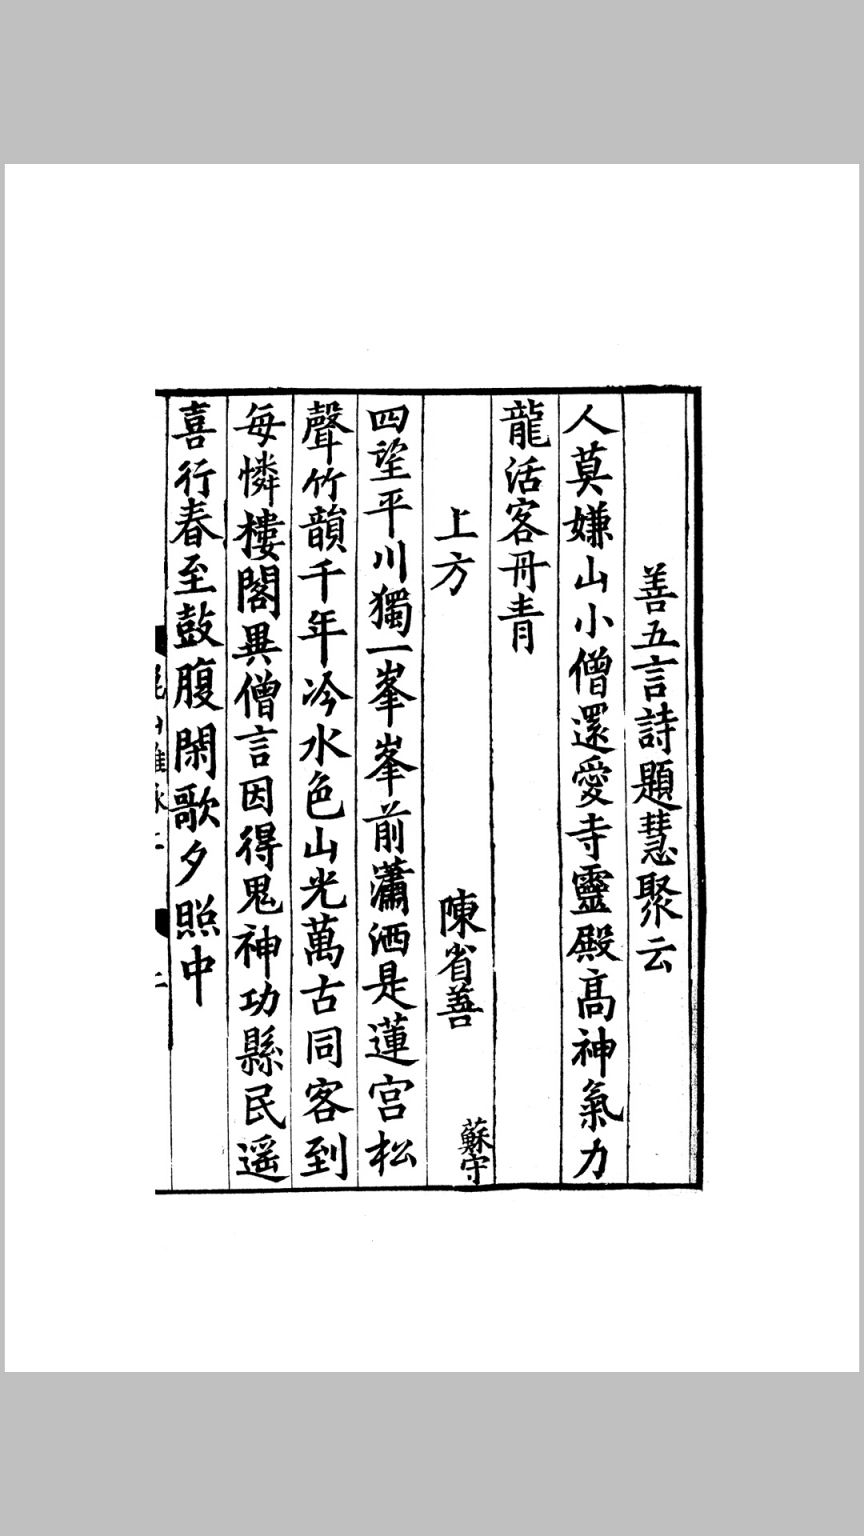 善五言詩題慧聚云
人莫嫌山小僧還愛寺靈殿高神氣力
龍活客丹青
上方 陳省善 蘇守
四望平川獨一峯峯前瀟洒是蓮宮松
聲竹韻千年冷水色山光萬古同客到
每憐樓閣異僧言因得鬼神功縣民遥
喜行春至鼓腹閑歌夕照中